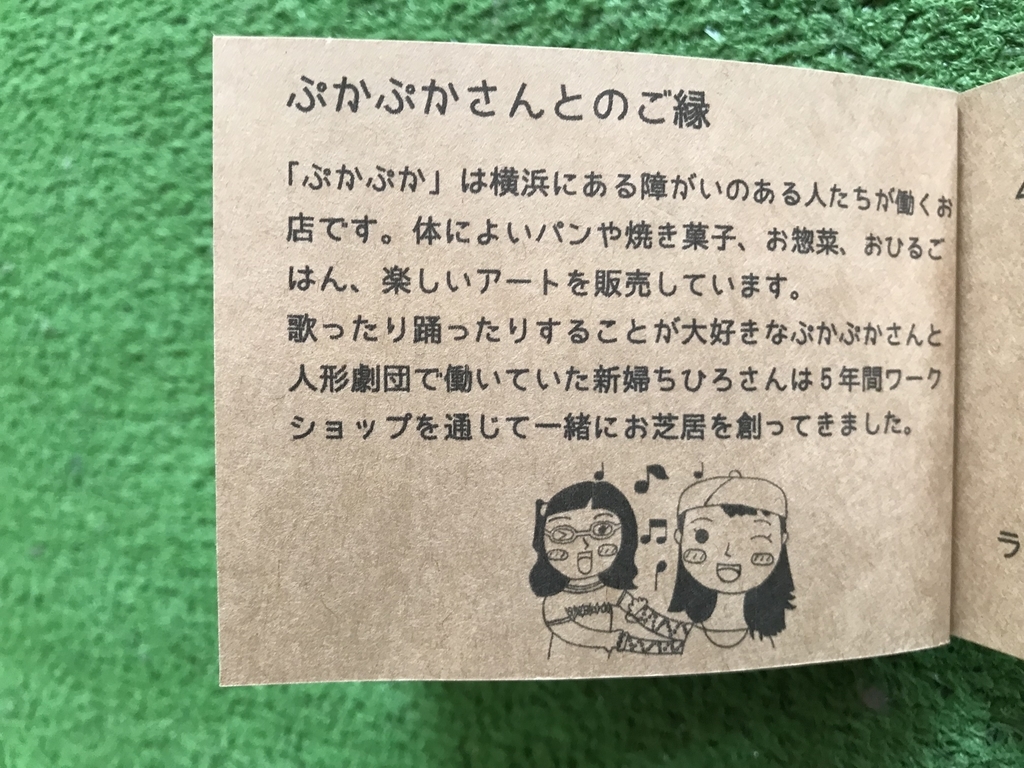 ぷかぷかさんとのご縁
「ぷかぷか」は横浜にある障がいのある人たちが働くお
店です。体によいパンや焼き菓子、お惣菜、おひるご
はん、楽しいアートを販売しています。
歌ったり踊ったりすることが大好きなぷかぷかさんと
人形劇団で働いていた新婦ちひろさんは5年間ワーク
ショップを通じて一緒にお芝居を創ってきました。
ラ